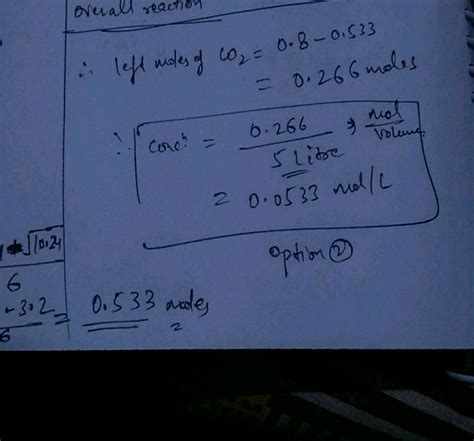 overall reaction
∴ left moles of CO₂ = 0.8 - 0.533
= 0.266 moles
∴ Conc. = 0.266 / 5 Litre → mol / Volume
= 0.0533 mol/L
Option ②
10.24
6
- 3.2
6
= 0.533 moles